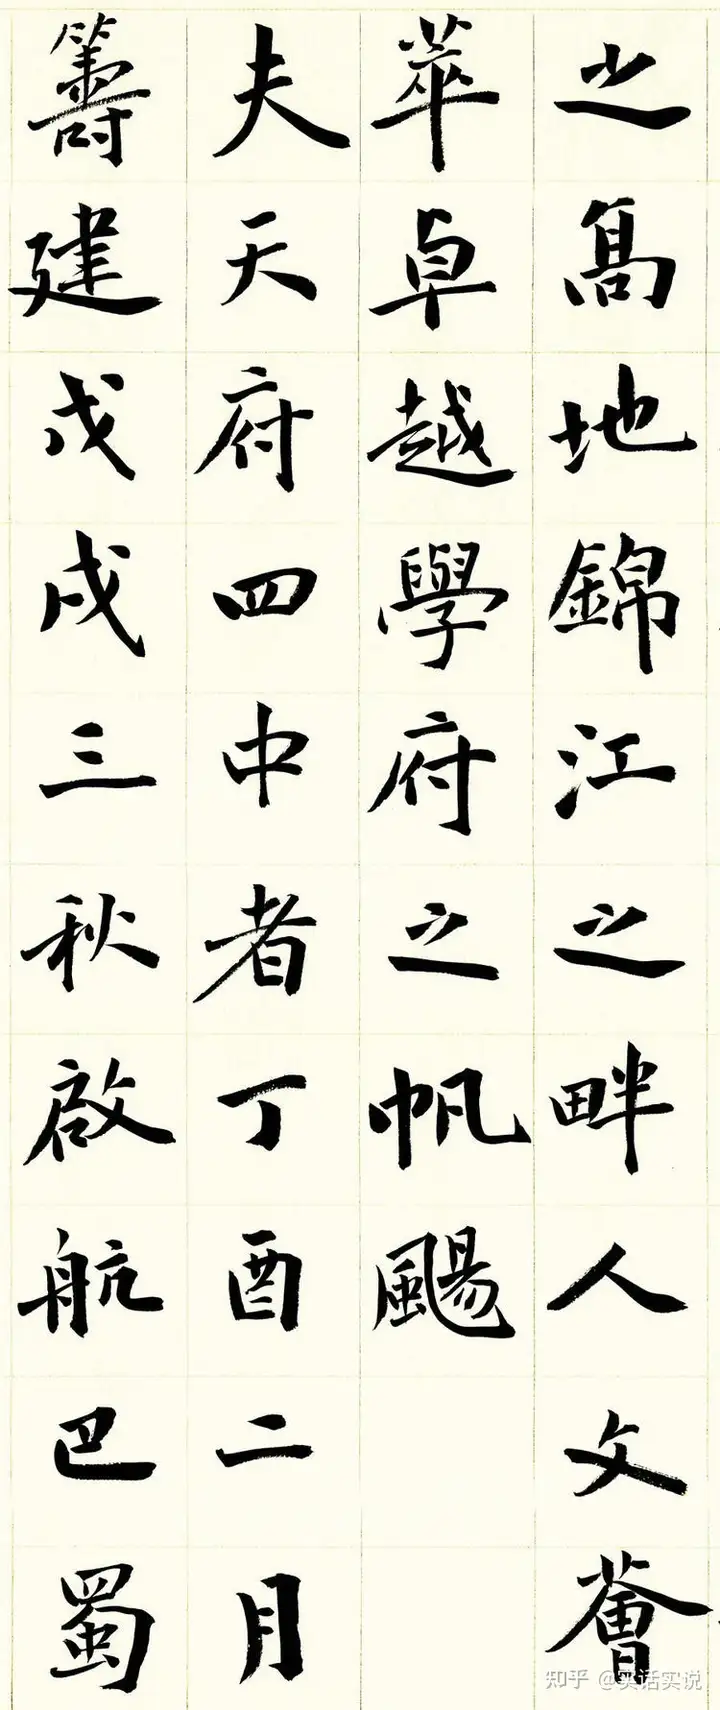 之髙地錦江之畔人文薈
萃卓越學府之帆颺
夫天府四中者丁酉二月
籌建戊戌三秋啟航巴蜀
知乎 @实话实说